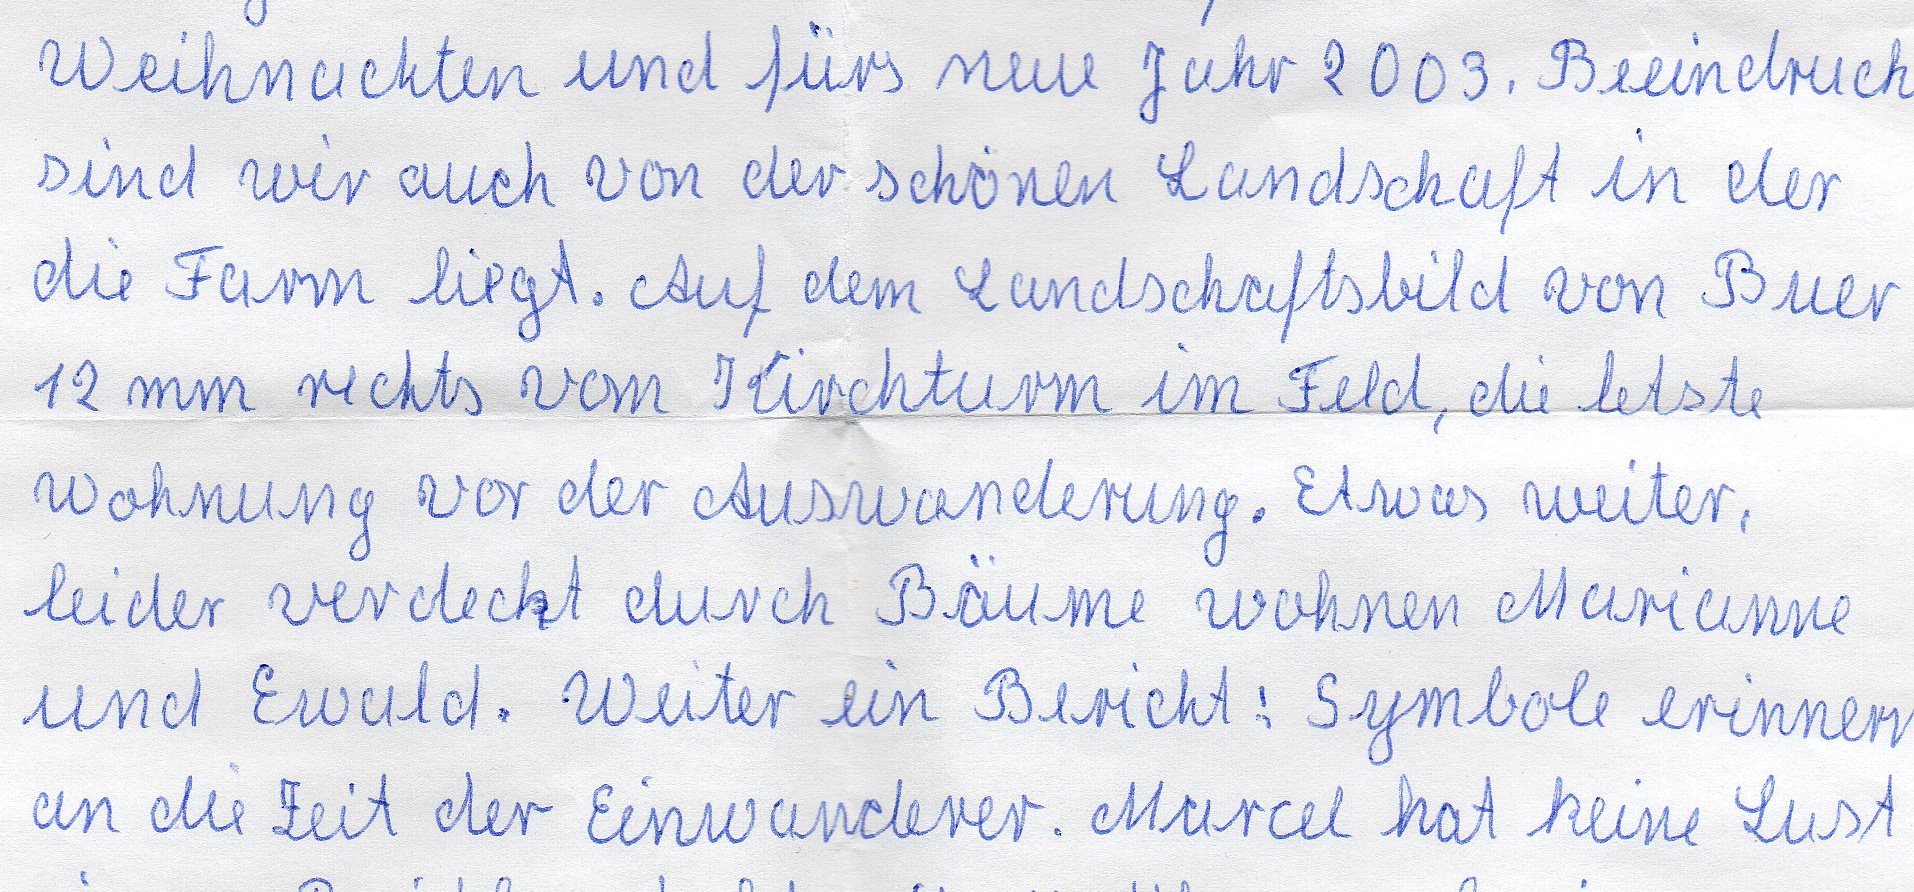 Weihnachten und fürs neue Jahr 2003. Beeindruck
sind wir auch von der schönen Landschaft in der
die Farm liegt. Auf dem Landschaftsbild von Buer
12 mm rechts vom Kirchturm im Feld, die letste
Wohnung vor der Auswanderung. Etwas weiter,
leider verdeckt durch Bäume wohnen Marianne
und Ewald. Weiter ein Bericht: Symbole erinnern
an die Zeit der Einwanderer. Marcel hat keine Lust